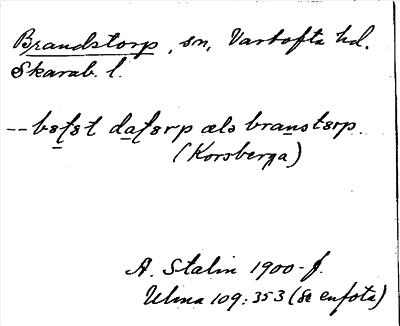 Brandstorp, sn, Vartofta hd.
Skarab. l.
-- bɘʈɘt daʈɘrp ælɘ branstɘrp.
(Korsberga)
A. Stalin 1900-f.
Ulma 109:353 (se enfota)